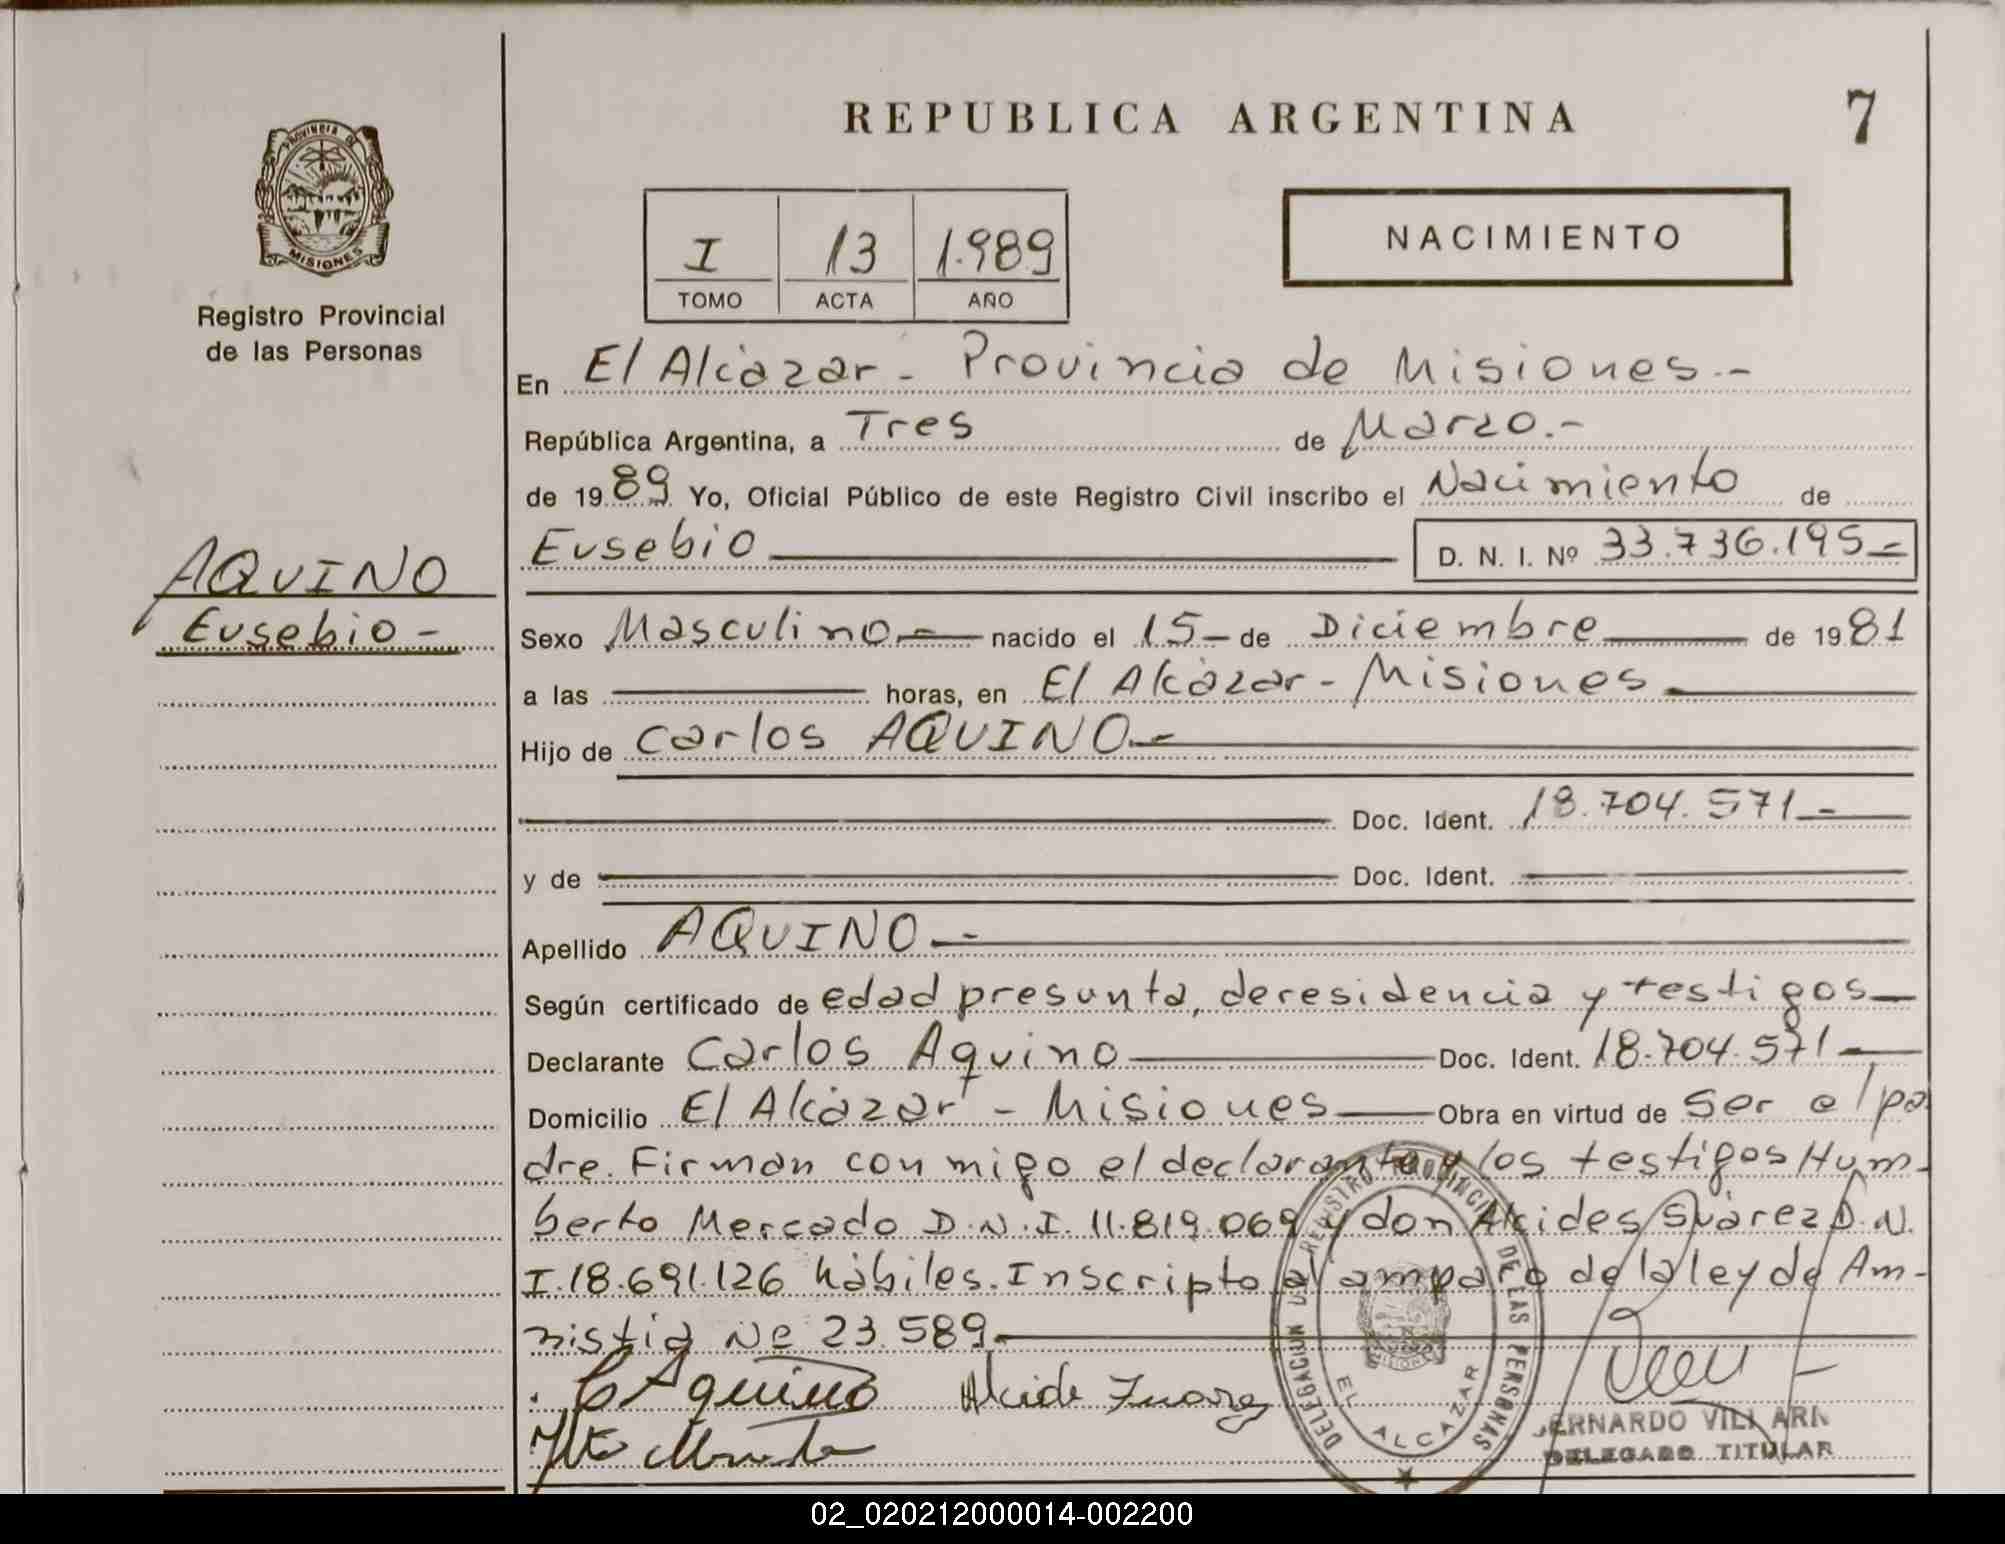 REPUBLICA ARGENTINA
7
PROVINCIA DE
MISIONES
Registro Provincial
de las Personas
I 13 1.989
TOMO ACTA AÑO
NACIMIENTO
En El Alcázar - Provincia de Misiones.-
República Argentina, a Tres de Marzo.-
de 1989 Yo, Oficial Público de este Registro Civil inscribo el Nacimiento de
Eusebio D. N. I. Nº 33.736.195-
AQUINO
Eusebio-
Sexo Masculino.- nacido el 15- de Diciembre de 1981
a las horas, en El Alcázar - Misiones
Hijo de Carlos AQUINO.-
Doc. Ident. 18.704.571.-
y de Doc. Ident.
Apellido AQUINO.-
Según certificado de edad presunta, de residencia y testigos
Declarante Carlos Aquino Doc. Ident. 18.704.571-
Domicilio El Alcázar - Misiones Obra en virtud de ser el pa
dre. Firman conmigo el declarante y los testigos Hum-
berto Mercado D.N.I. 11.819.069 y don Alcides Suárez D.N.
I.18.691.126 hábiles. Inscripto al amparo de la ley de Am-
nistia Nº 23.589.
C Aquino Alcide Juarez
DELEGACION DE REGISTRO PROVINCIAL DE LAS PERSONAS
MISIONES
EL ALCAZAR
BERNARDO VILLARN
DELEGADO TITULAR
02_020212000014-002200